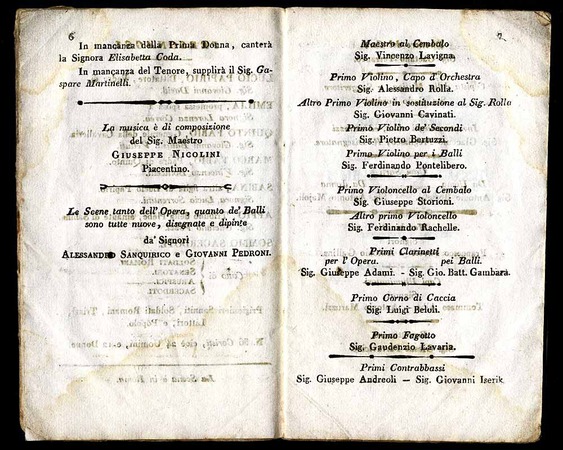 6
In mancanza della Prima Donna, canterà
la Signora Elisabetta Coda.
In mancanza del Tenore, supplirà il Sig. Ga-
spare Martinelli.
La musica è di composizione
del Sig. Maestro
GIUSEPPE NICOLINI
Piacentino.
Le Scene tanto dell' Opera, quanto de' Balli
sono tutte nuove, disegnate e dipinte
da' Signori
ALESSANDRO SANQUIRICO e GIOVANNI PEDRONI.
7
Maestro al Cembalo
Sig. Vincenzo Lavigna.
Primo Violino, Capo d'Orchestra
Sig. Alessandro Rolla.
Altro Primo Violino in sostituzione al Sig. Rolla
Sig. Giovanni Cavinati.
Primo Violino de' Secondi
Sig. Pietro Bertuzzi.
Primo Violino per i Balli
Sig. Ferdinando Pontelibero.
Primo Violoncello al Cembalo
Sig. Giuseppe Storioni.
Altro primo Violoncello
Sig. Ferdinando Rachelle.
Primi Clarinetti
per l' Opera. pei Balli.
Sig. Giuseppe Adami. - Sig. Gio. Batt. Gambara.
Primo Corno di Caccia
Sig. Luigi Beloli.
Primo Fagotto
Sig. Gaudenzio Lavaria.
Primi Contrabbassi
Sig. Giuseppe Andreoli — Sig. Giovanni Iserik.